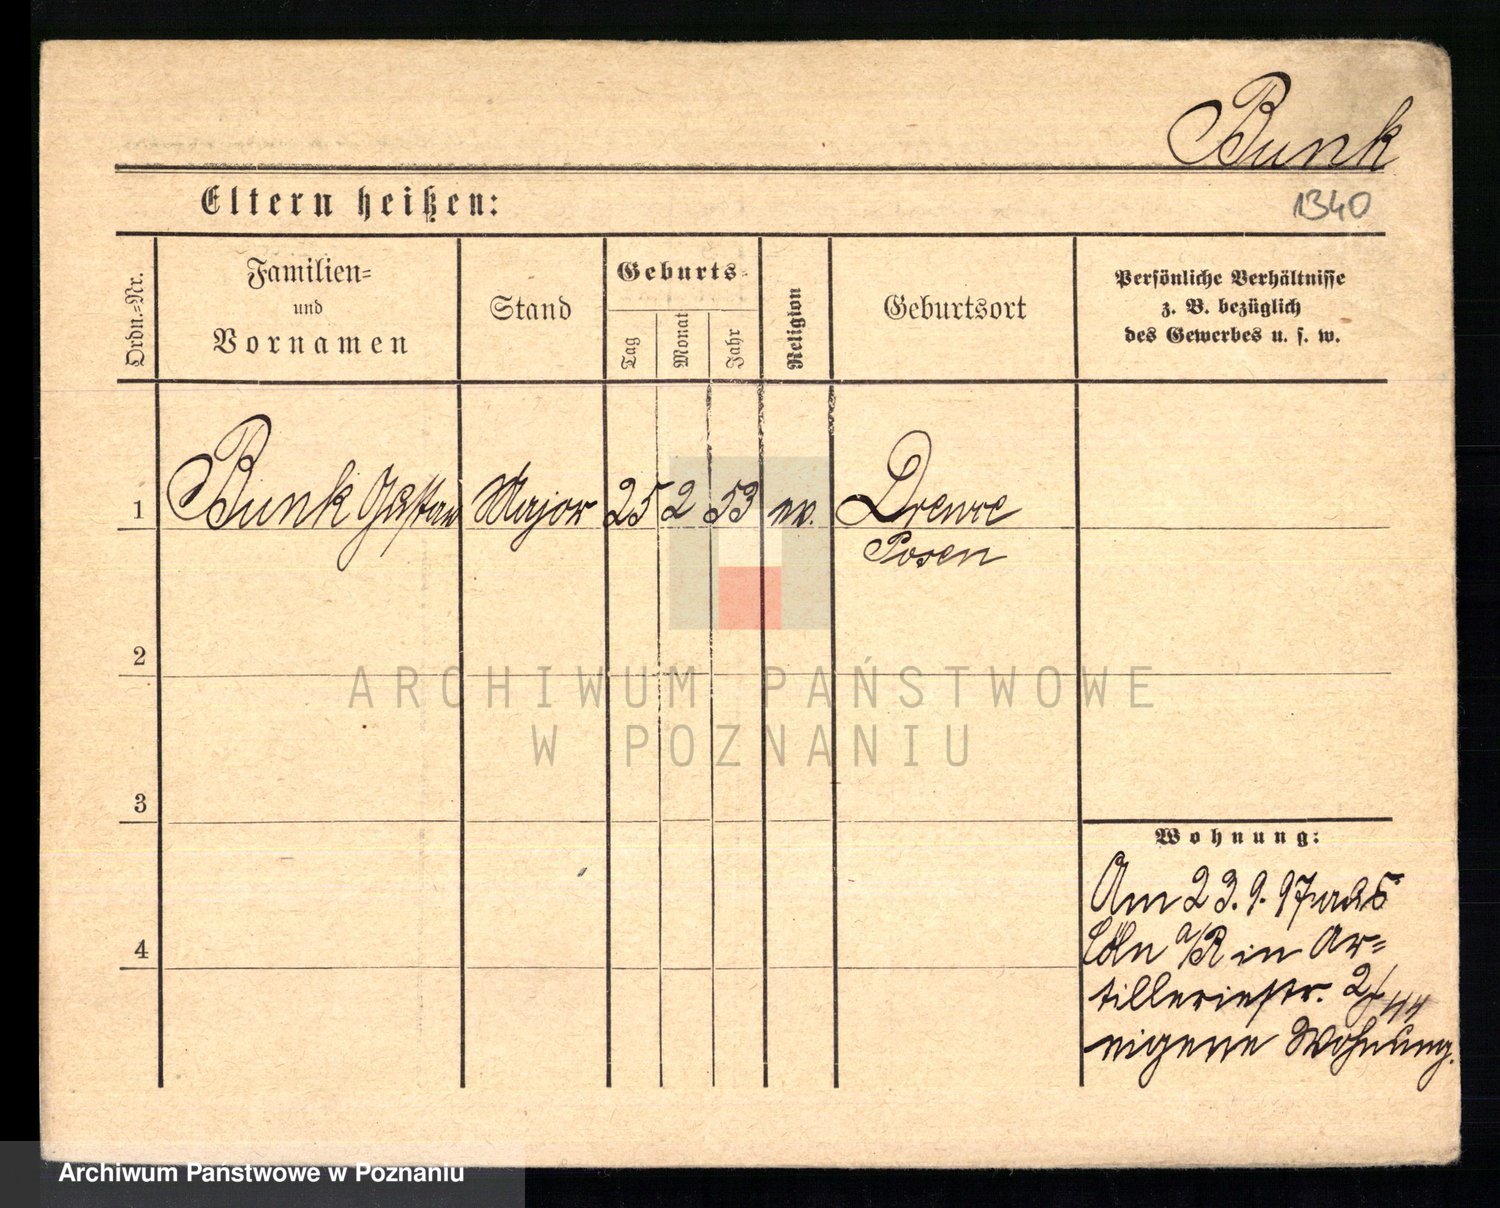 Bunk
Eltern heißen:
1340
Ordn.=Nr.
Familien=
und
Vornamen
Stand
Geburts=
Tag
Monat
Jahr
Religion
Geburtsort
Persönliche Verhältnisse
z. B. bezüglich
des Gewerbes u. s. w.
1
Bunk Gustav
Major
25
2
53
ev.
Drewce
Posen
2
ARCHIWUM PAŃSTWOWE
W POZNANIU
3
4
Wohnung:
Am 23.9.97 aus
Cöln a/R in Ar=
tilleriestr. 2
eigene Wohnung.
Archiwum Państwowe w Poznaniu